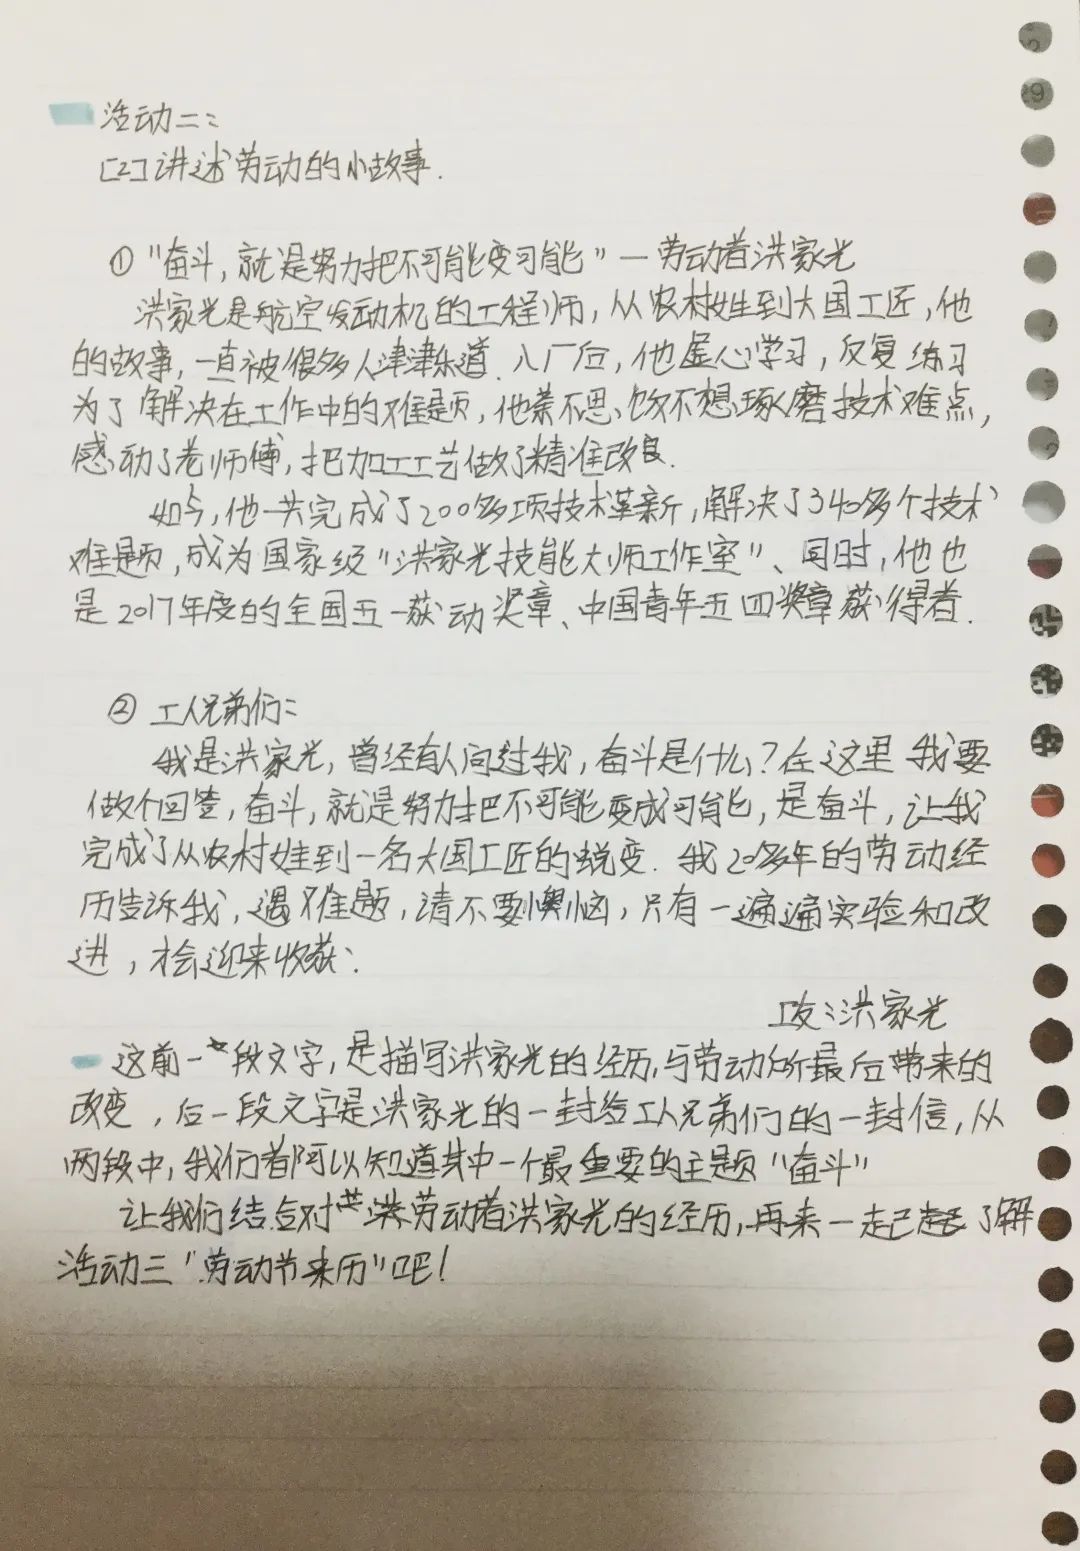 活动二：
[2]讲述劳动的小故事.
①“奋斗，就是努力把不可能变可能”—劳动者洪家光
洪家光是航空发动机的工程师，从农村娃到大国工匠，他
的故事，一直被很多人津津乐道.入厂后，他虚心学习，反复练习
为了解决在工作中的难题，他茶不思、饭不想琢磨技术难点，
感动了老师傅，把加工工艺做了精准改良.
如今，他一共完成了200多项技术革新，解决了340多个技术
难题，成为国家级“洪家光技能大师工作室”、同时，他也
是2017年度的全国五一获动奖章、中国青年五四奖章获得者.
② 工人兄弟们：
我是洪家光，曾经有人问过我，奋斗是什么？在这里我要
做个回答，奋斗，就是努力把不可能变成可能，是奋斗，让我
完成了从农村娃到一名大国工匠的蜕变.我20多年的劳动经
历告诉我，遇难题，请不要懊恼，只有一遍遍实验和改
进，才会迎来收获.
工友：洪家光
这前一段文字，是描写洪家光的经历，与劳动所最后带来的
改变，后一段文字是洪家光的一封给工人兄弟们的一封信，从
两段中，我们都可以知道其中一个最重要的主题“奋斗”
让我们结合对洪劳动者洪家光的经历，再来一起了解
活动三“劳动节来历”吧！